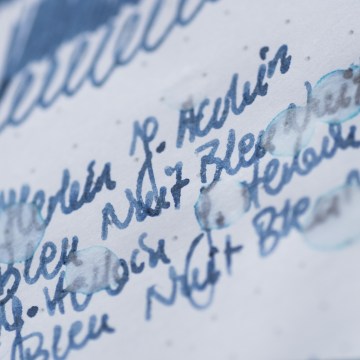 Herbin J. Herbin
Bleu Nuit Bleu Nuit
J. Herbin J. Herbin
Bleu Nuit Bleu